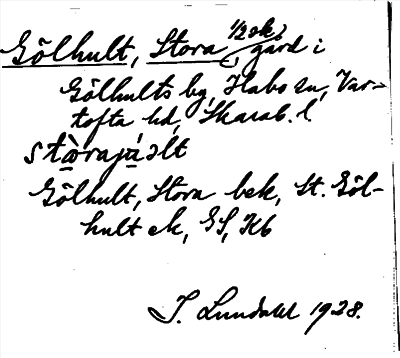 Gölhult, Stora, gård i
1/2 ek,
Gölhults by, Habo sn, Var-
tofta hd, Skarab. l
Gölhult, Stora bek, St. Göl-
hult ek, GS, Kb
I. Lundahl 1928.